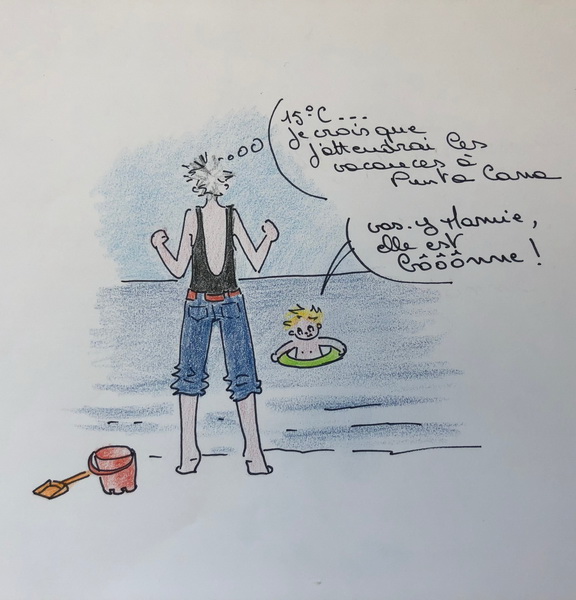 15°C...
Je crois que
j'attendrai les
vacances à
Punta Cana
vas-y Mamie,
elle est
bôôônne !